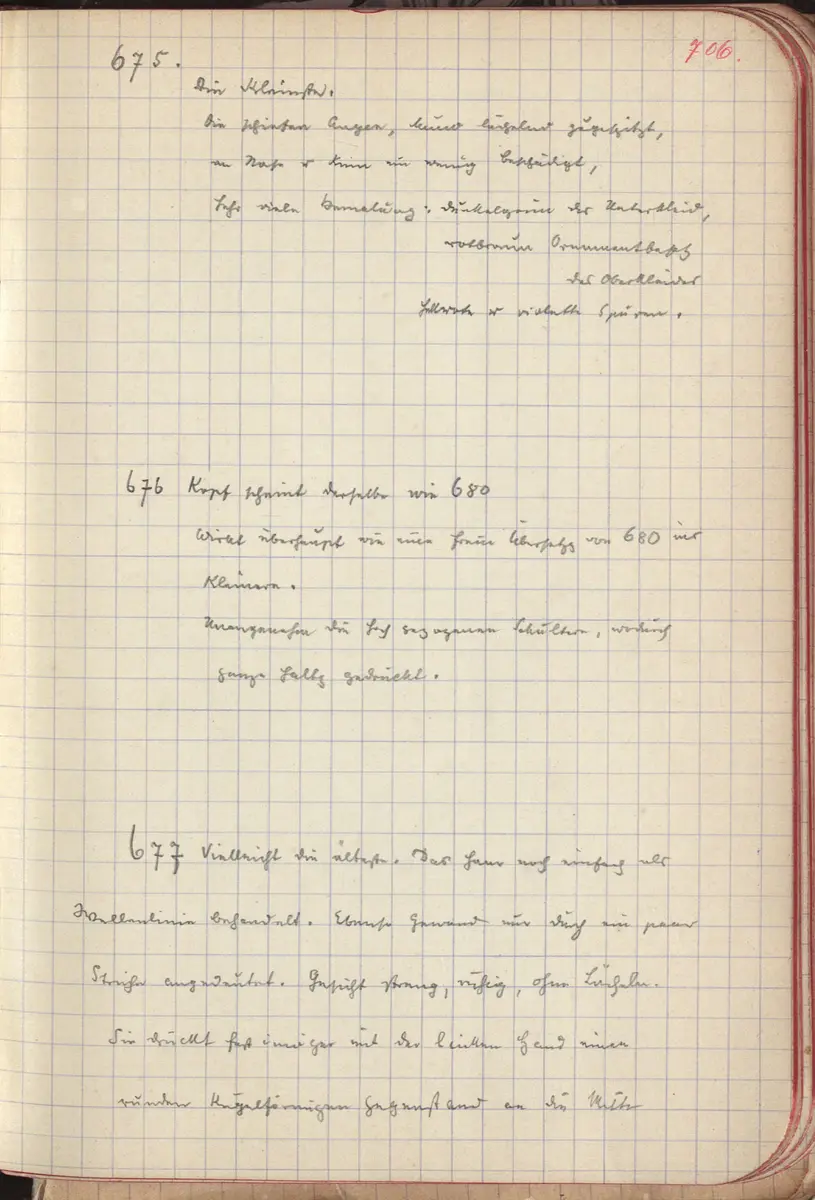 706.
675.
Die Kleinste.
Die schiefen Augen, Mund lächelnd zugespitzt,
an Nase u Kinn ein wenig beschädigt,
Sehr viele Bemalung: dunkelgrün des Unterkleid,
rotbraun Ornamentbesatz
des Oberkleides
hellrote u violette Spuren.
676 Kopf scheint derselbe wie 680
Wirkt überhaupt wie eine freie Übersetzg von 680 ins
Kleinere.
Unangenehm die hoch gezogenen Schultern, wodurch
ganze Haltg gedrückt.
677 Vielleicht die älteste. Das Haar noch einfach als
Wellenlinie behandelt. Ebenso Gewand nur durch ein paar
Striche angedeutet. Gesicht streng, ruhig, ohne Lächeln.
Sie drückt mit der linken Hand einen
runden kugelförmigen Gegenstand an die Mitte